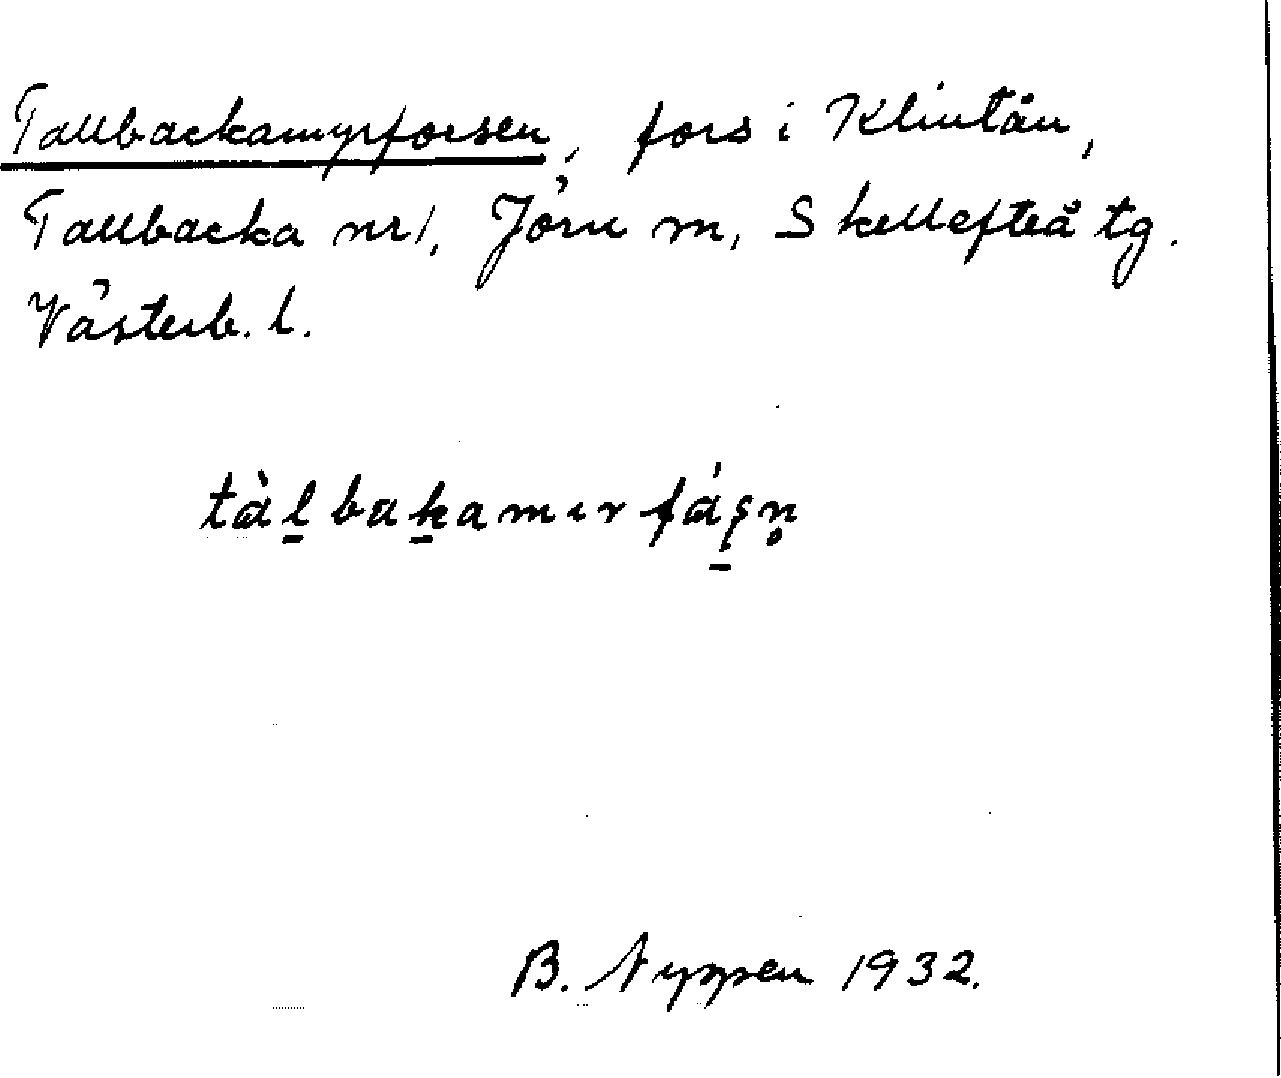 Tallbackamyrforsen, fors i Klintån,
Tallbacka nr 1, Jörn sn, Skellefteå tg.
Västerb. l.
tàl̠bak̠amırfáʂ̠n̥
B. Nyppen 1932.